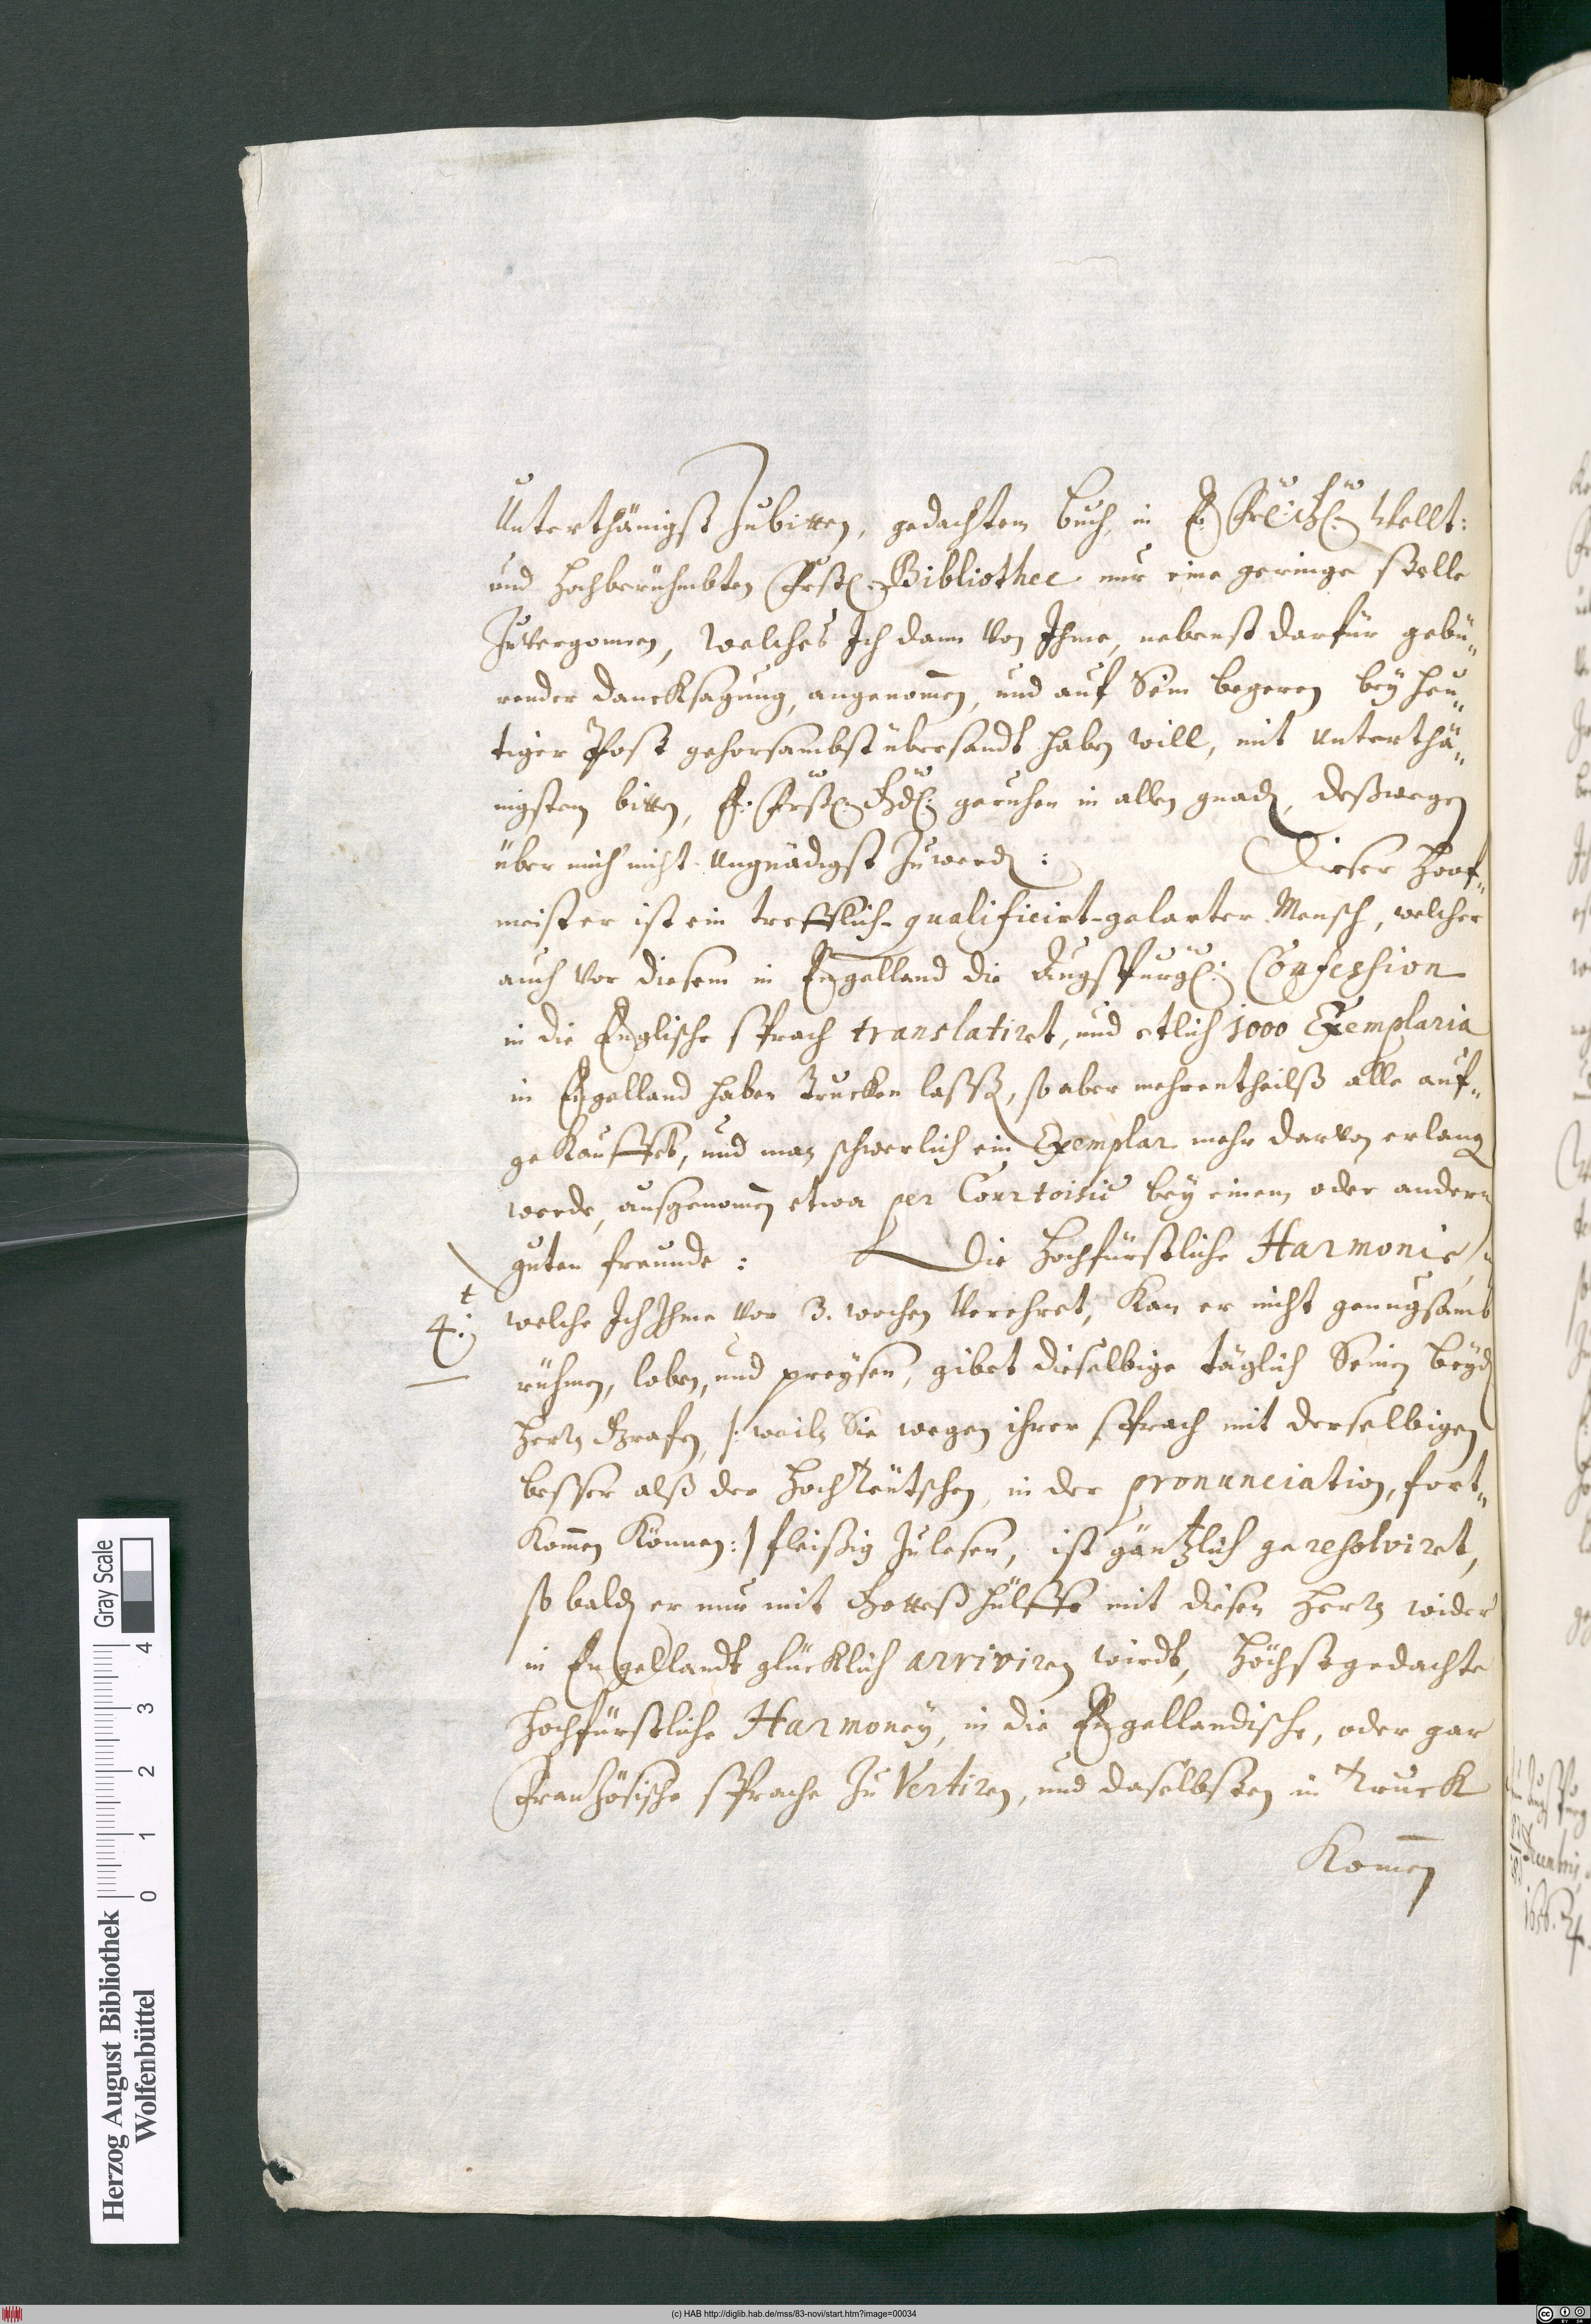 Unterthänigst zubitten, gedachtem Buch, in E. Frstl. Dhl. Wellt:
und Hochberühmbten Frstl: Bibliothec nur eine geringe stelle
zuvergonnen, welches Ich dann von Ihme, nebenst darfür gebü„
render dancksagung, angenom̄en, und auf Sein begeren bey heu„
tiger Post gehorsambst übersandt haben will, mit Unterthä„
nigstem bitten, E: Frstl: Gdl: geruhen in allen gnaden, deßwegen
über mich nicht Ungnädigst zuwerden: Dieser Hoof„
meister ist ein trefflich-qualificirt-gelarter Mensch, welcher
auch vor diesem in Engelland die Augspurgl: Confession
in die Englische sprach translatiret, und etlich 1000 Exemplaria
in Engelland haben Trucken lassen, so aber mehrentheilß alle auf„
gekaufft, und man schwerlich ein Exemplar mehr darvon erlangen
werde, ausgenom̄en etwa per Courtoisie bey einem, oder andern
guten freunde: Die Hochfürstliche Harmonie,
4.t: welche Ich Ihme vor 3. wochen Verehret, kan er nicht genugsamb
rühmen, loben, und preysen, gibet dieselbige täglich Seinen beyden
Herrn Grafen, /: weiln Sie wegen ihrer sprach mit derselbigen
besser alß der HochTeutschen, in der pronunciation, fort„
kom̄en können:/ fleißig zulesen, ist gäntzlich geresolviret,
so balden er nur mit Gotteß hülffe mit diesen Herrn wider
in Engellandt glücklich arriviren wirdt, Höchstgedachte
Hochfürstliche Harmoney, in die Engellandische, oder gar
Französische sprache zu Vertiren, und daselbsten in Truck
kom̄en
Herzog August Bibliothek
Wolfenbüttel
Gray Scale
0 1 2 3 4
(c) HAB http://diglib.hab.de/mss/83-novi/start.htm?image=00034